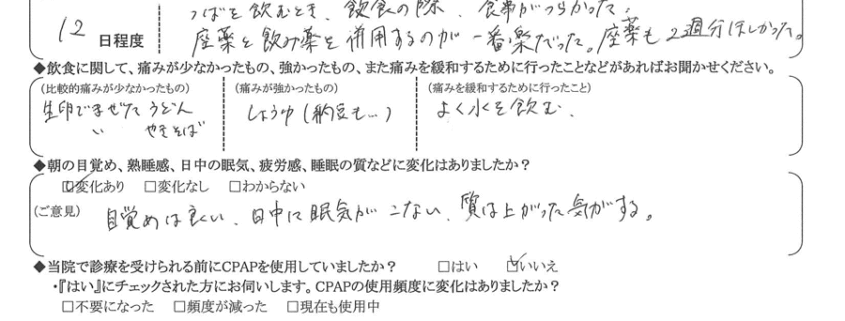 つばを飲むとき、飲食の際、食事がつらかった。
12 日程度 座薬と飲み薬を併用するのが一番楽だった。座薬も2週分ほしかった。
◆飲食に関して、痛みが少なかったもの、強かったもの、また痛みを緩和するために行ったことなどがあればお聞かせください。
(比較的痛みが少なかったもの) (痛みが強かったもの) (痛みを緩和するために行ったこと)
生卵でまぜたうどん しょうゆ(納豆も…) よく水を飲む、
〃 やきそば
◆朝の目覚め、熟睡感、日中の眠気、疲労感、睡眠の質などに変化はありましたか?
☑変化あり □変化なし □わからない
(ご意見) 目覚めは良い、日中に眠気がこない、質は上がった気がする。
◆当院で診療を受けられる前にCPAPを使用していましたか? □はい ☑いいえ
・『はい』にチェックされた方にお伺いします。CPAPの使用頻度に変化はありましたか?
□不要になった □頻度が減った □現在も使用中